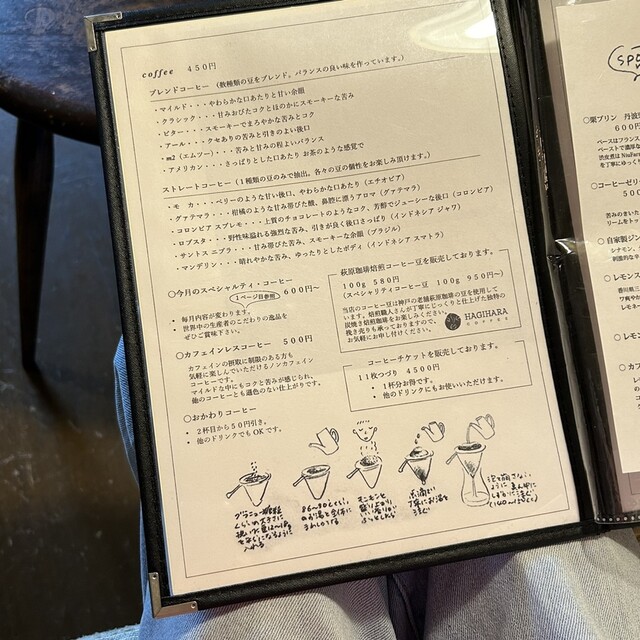 coffee 450円
ブレンドコーヒー（数種類の豆をブレンド。バランスの良い味を作っています。）
・マイルド・・・やわらかな口あたりと甘い余韻
・クラシック・・・甘みおびたコクとほのかにスモーキーな苦み
・ビター・・・スモーキーでまろやかな苦みとコク
・アール・・・クセありの苦みと引きのよい後口
・m2（エムツー）・・・苦みと甘みの程よいバランス
・アメリカン・・・さっぱりとした口あたり お茶のような感覚で
ストレートコーヒー（1種類の豆のみで抽出。各々の豆の個性をお楽しみ頂けます。）
・モ カ・・・ベリーのような甘い後口、やわらかな口あたり（エチオピア）
・グァテマラ・・・柑橘のような甘み帯びた酸、鼻腔に漂うアロマ（グァテマラ）
・コロンビア スプレモ・・・上質のチョコレートのようなコク、芳醇でジューシーな後口（コロンビア）
・ロブスタ・・・野性味溢れる強烈な苦み、引きが良く後口さっぱり（インドネシア ジャワ）
・サントス ニブラ・・・甘み帯びた苦み、スモーキーな余韻（ブラジル）
・マンデリン・・・晴れやかな苦み、ゆったりとしたボディ（インドネシア スマトラ）
○今月のスペシャルティ・コーヒー
1ページ目参照 600円〜
• 毎月内容が変わります。
• 世界中の生産者のこだわりの逸品を
ぜひご賞味下さい。
○カフェインレスコーヒー 500円
カフェインの摂取に制限のある方も
気軽に楽しんでいただけるノンカフェイン
コーヒーです。
マイルドな中にもコクと苦みが感じられ、
他のコーヒーとも遜色のない仕上がりです。
○おかわりコーヒー
• 2杯目から50円引き。
• 他のドリンクでもOKです。
萩原珈琲焙煎コーヒー豆を販売しております。
100g 580円
（スペシャリティコーヒー豆 100g 950円〜）
当店のコーヒー豆は神戸の老舗萩原珈琲の豆を使用して
います。焙煎職人さんが丁寧にじっくりと仕上げた独特の
炭焼き焙煎珈琲をお楽しみください。
挽き売りも承っておりますので、
お気軽にお申し付けください。
HAGIHARA
COFFEE
コーヒーチケットを販売しております。
11枚つづり 4500円
• 1杯分お得です。
• 他のドリンクにもお使いいただけます。
SPE
○栗プリン 丹波
600円
ベースはフランス
○コーヒーゼリー
500
○自家製ジン
○レモン
レモネー
○レモ
○カフ